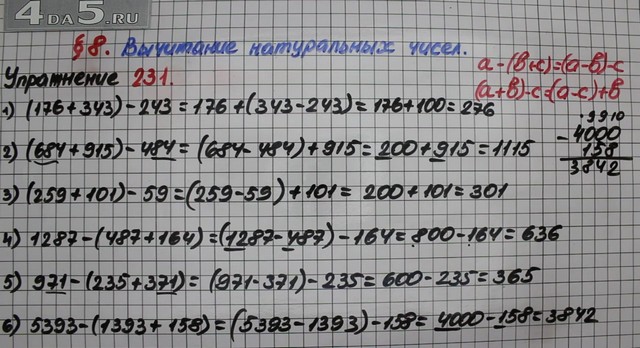 4DA5.RU
§8. Вычитание натуральных чисел.
Упражнение 231.
a-(в+с)=(a-в)-с
(a+в)-с=(a-с)+в
1) (176+343)-243=176+(343-243)=176+100=276
2) (684+915)-484=(684-484)+915=200+915=1115
·9910
-4000
158
3842
3) (259+101)-59=(259-59)+101=200+101=301
4) 1287-(487+164)=(1287-487)-164=800-164=636
5) 971-(235+371)=(971-371)-235=600-235=365
6) 5393-(1393+158)=(5393-1393)-158=4000-158=3842